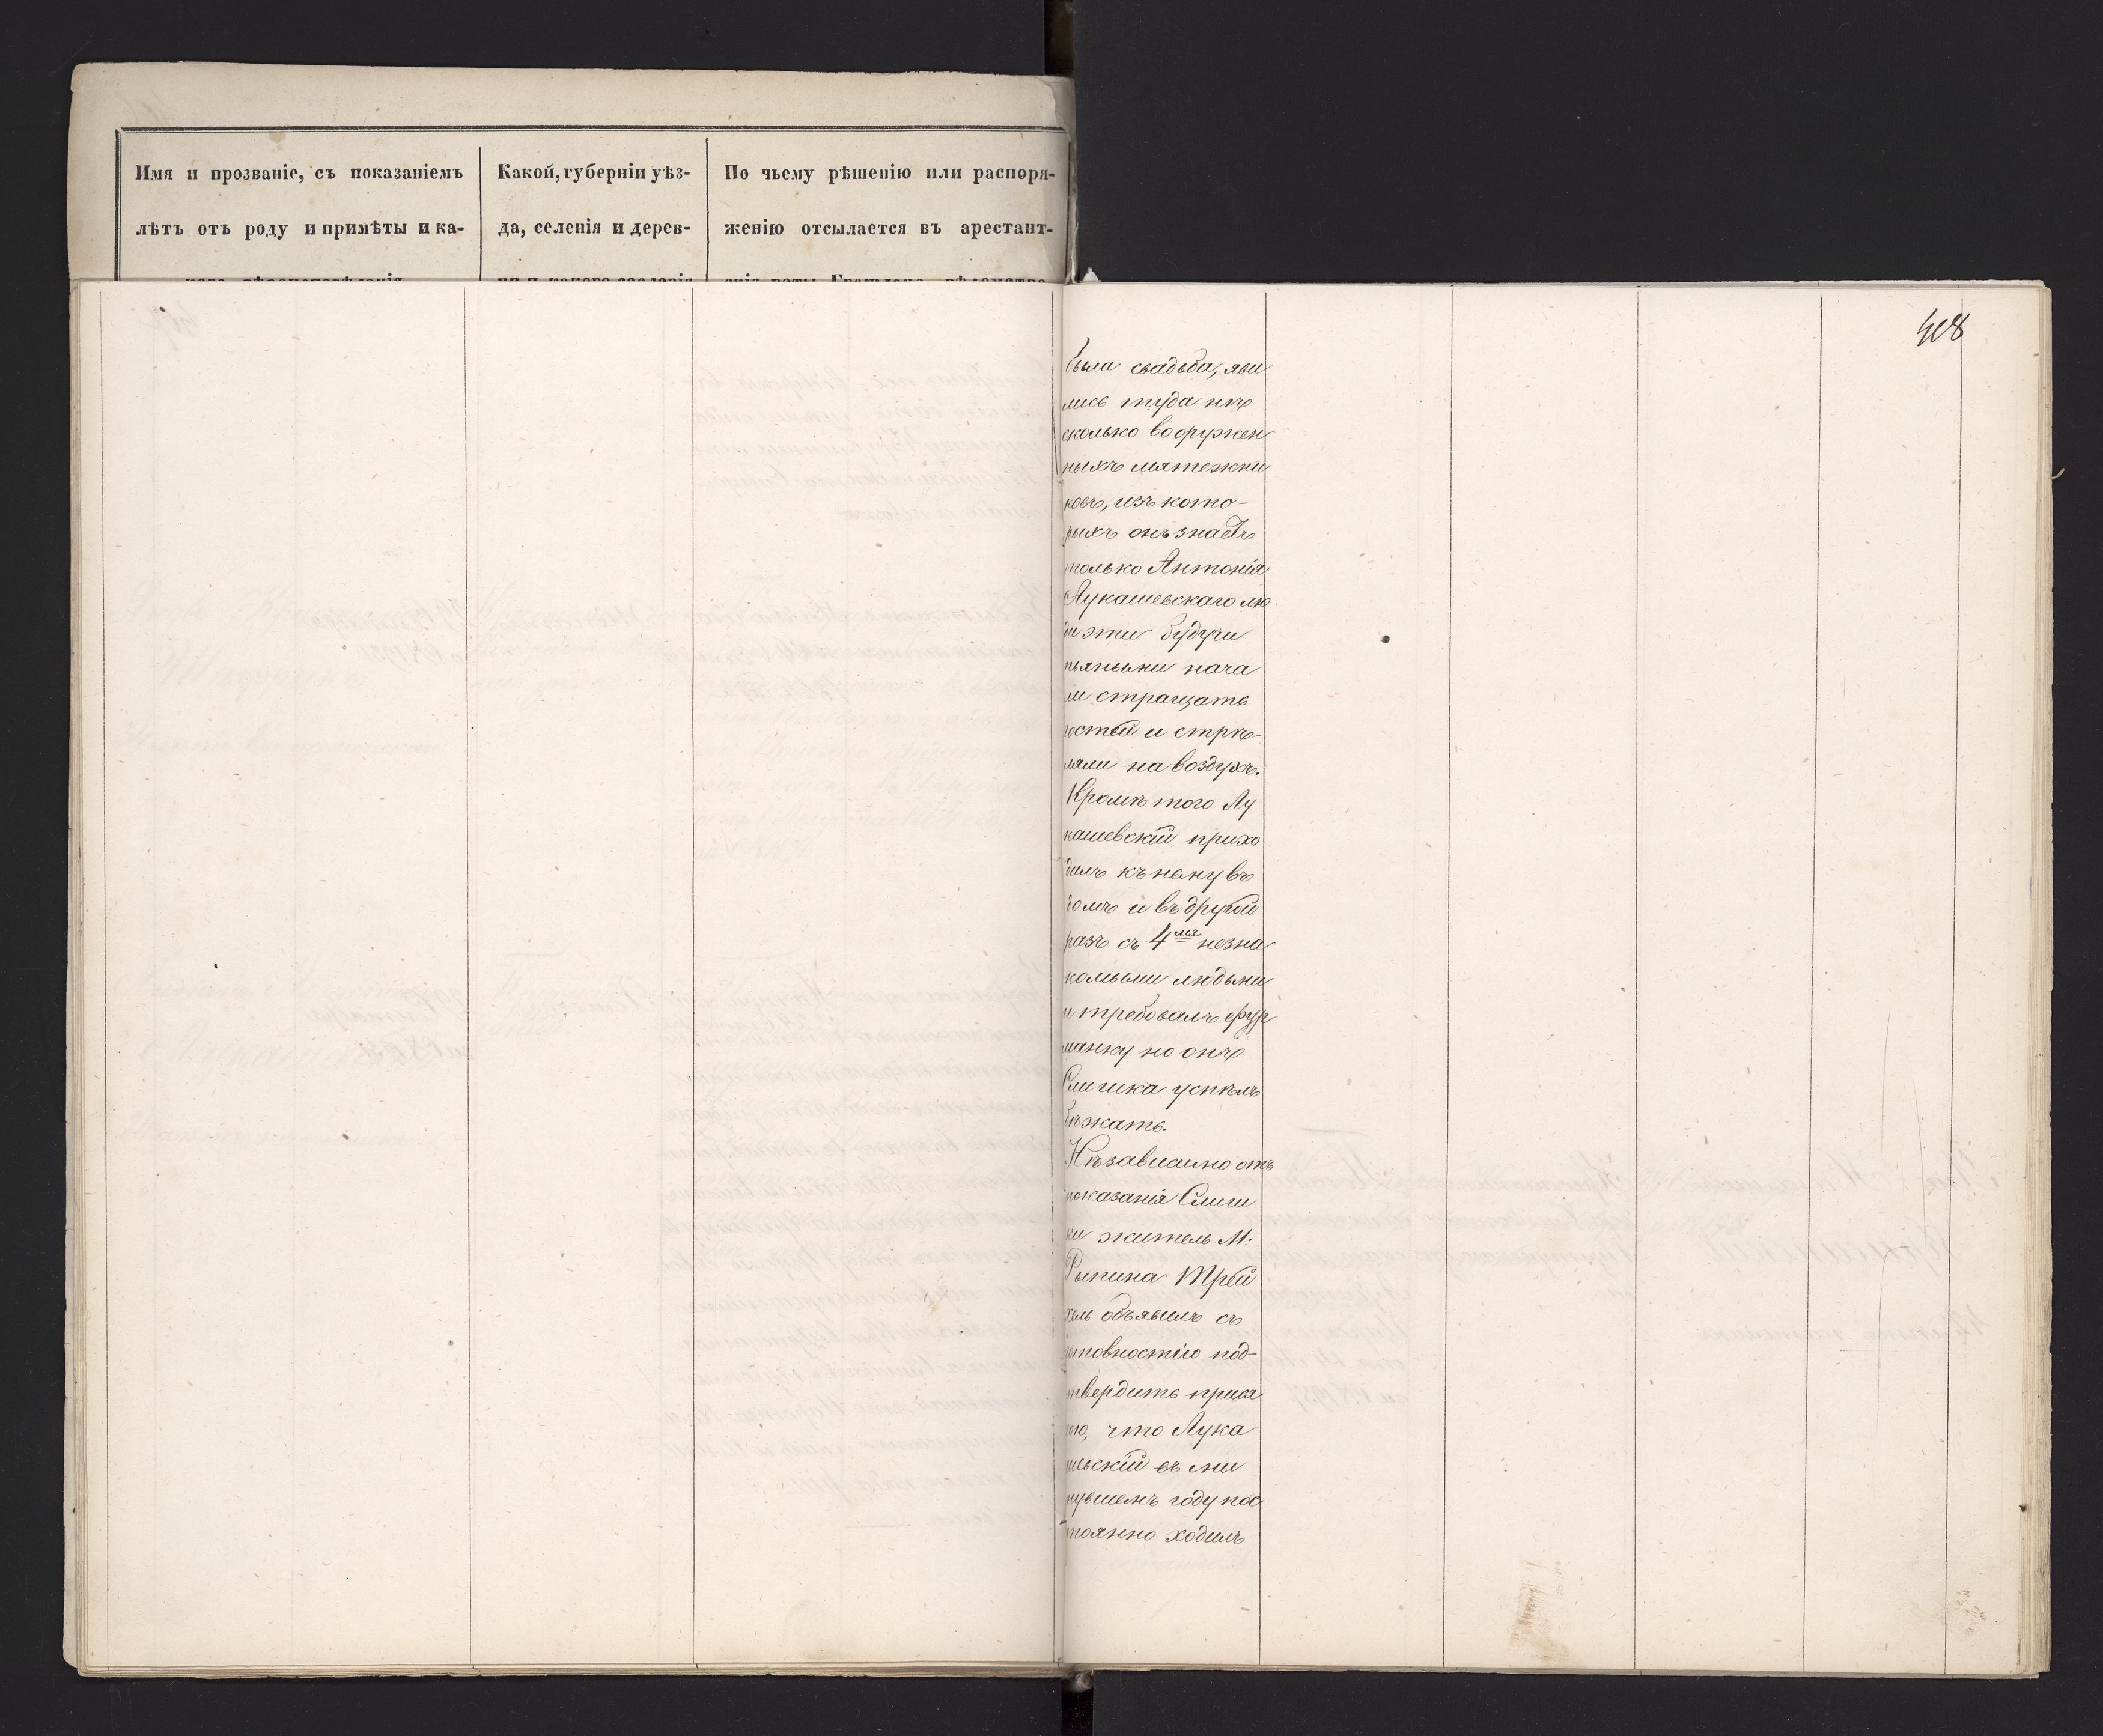 Имя и прозваніе, съ показаніемъ
лѣтъ отъ роду и примѣты и ка-
Какой, губерніи уѣз-
да, селенія и дерев-
По чьему рѣшенію или распоря-
женію отсылается въ арестант-
408
была свадьба, яви
лись туда нѣ
сколько вооружен
ныхъ мятежни
ковъ, изъ кото-
рыхъ онъ знаетъ
только Антонія
Лукашевскаго лю
ди эти будучи
пьяными нача
ли стращать
гостей и стрѣ-
ляли на воздухъ.
Кромѣ того Лу
кашевскій прихо
дилъ къ нему въ
домъ и въ другой
разъ съ 4мя незна
комыми людьми
и требовалъ фур
манку но онъ
Слишка успѣлъ
бѣжать.
Нѣзависимо отъ
показанія Слиш
ки житель М:
Рыпина Трей
хель объявилъ съ
готовностію под-
твердить прися
гою, что Лука
шевскій въ ми
нувшемъ году пос
тоянно ходилъ